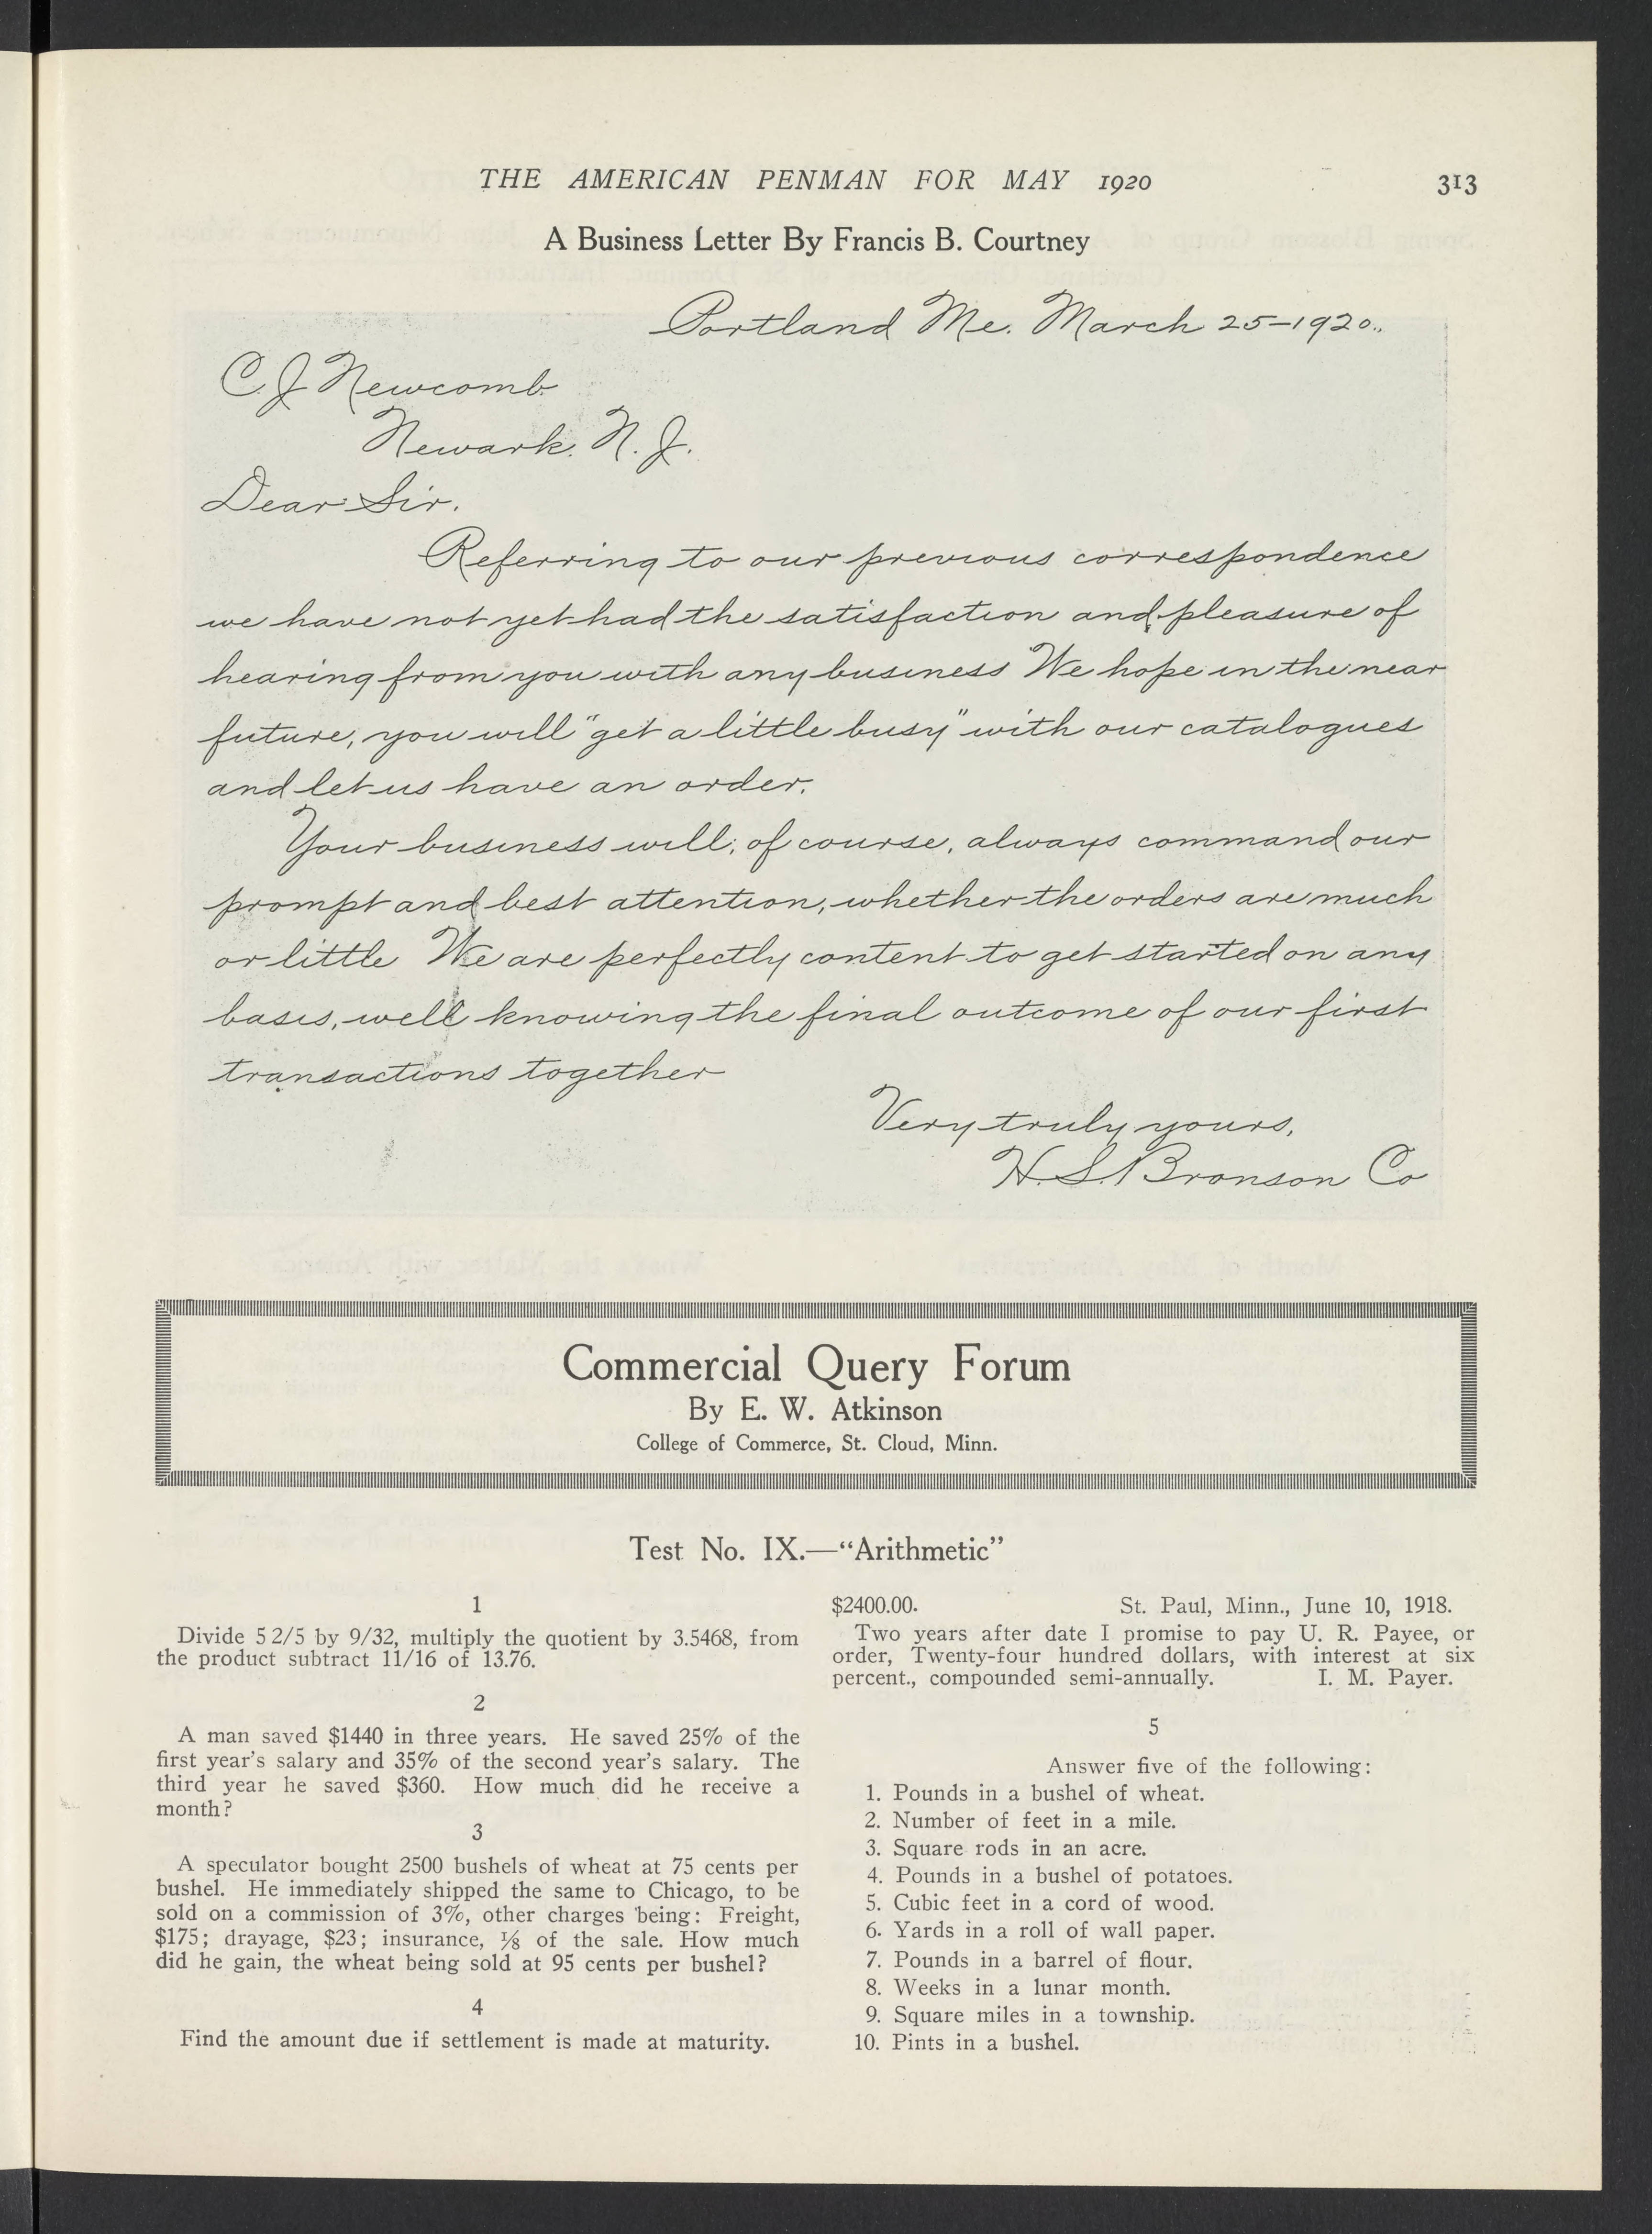 THE AMERICAN PENMAN FOR MAY 1920 313
A Business Letter By Francis B. Courtney
Portland Me. March 25-1920.
C. J. Newcomb
Newark. N. J.
Dear Sir.
Referring to our previous correspondence
we have not yet had the satisfaction and pleasure of
hearing from you with any business We hope in the near
future, you will "get a little busy" with our catalogues
and let us have an order.
Your business will, of course, always command our
prompt and best attention, whether the orders are much
or little We are perfectly content to get started on any
basis, well knowing the final outcome of our first
transactions together
Very truly yours,
H. S. Bronson Co
Commercial Query Forum
By E. W. Atkinson
College of Commerce, St. Cloud, Minn.
Test No. IX.—“Arithmetic”
1
Divide 5 2/5 by 9/32, multiply the quotient by 3.5468, from
the product subtract 11/16 of 13.76.
2
A man saved $1440 in three years. He saved 25% of the
first year's salary and 35% of the second year's salary. The
third year he saved $360. How much did he receive a
month?
3
A speculator bought 2500 bushels of wheat at 75 cents per
bushel. He immediately shipped the same to Chicago, to be
sold on a commission of 3%, other charges being: Freight,
$175; drayage, $23; insurance, ⅛ of the sale. How much
did he gain, the wheat being sold at 95 cents per bushel?
4
Find the amount due if settlement is made at maturity.
$2400.00. St. Paul, Minn., June 10, 1918.
Two years after date I promise to pay U. R. Payee, or
order, Twenty-four hundred dollars, with interest at six
percent., compounded semi-annually. I. M. Payer.
5
Answer five of the following:
1. Pounds in a bushel of wheat.
2. Number of feet in a mile.
3. Square rods in an acre.
4. Pounds in a bushel of potatoes.
5. Cubic feet in a cord of wood.
6. Yards in a roll of wall paper.
7. Pounds in a barrel of flour.
8. Weeks in a lunar month.
9. Square miles in a township.
10. Pints in a bushel.